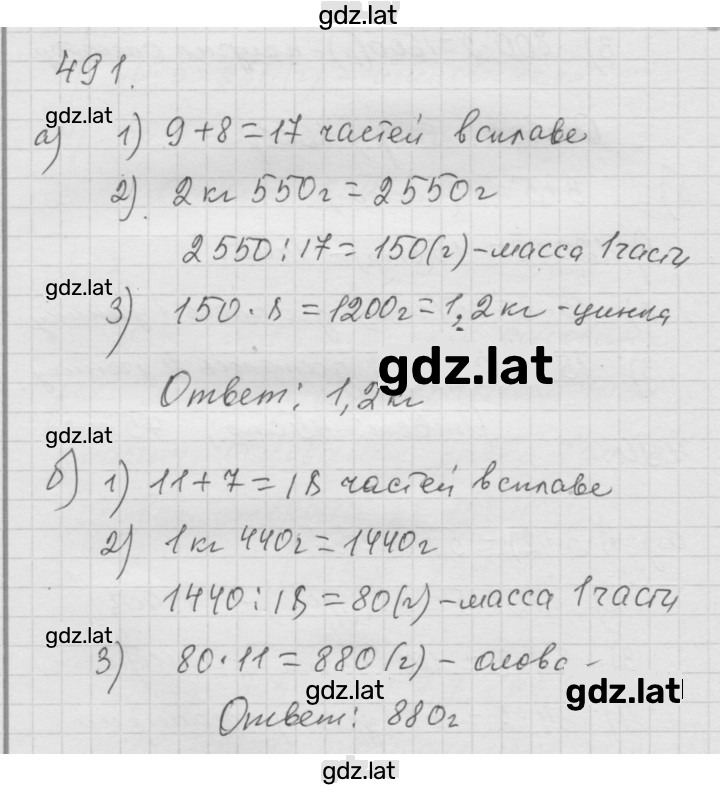 gdz.lat
491.
gdz.lat
а) 1) 9+8=17 частей в сплаве
2) 2 кг 550г = 2550г
2550:17 = 150(г)-масса 1 части
gdz.lat
3) 150·8 = 1200г = 1,2 кг - цинка
gdz.lat
Ответ: 1,2 кг
gdz.lat
б) 1) 11+7 = 18 частей в сплаве
2) 1 кг 440г = 1440г
1440:18 = 80(г)-масса 1 части
gdz.lat
3) 80·11 = 880 (г) - олово -
gdz.lat
gdz.lat
Ответ: 880г
gdz.lat